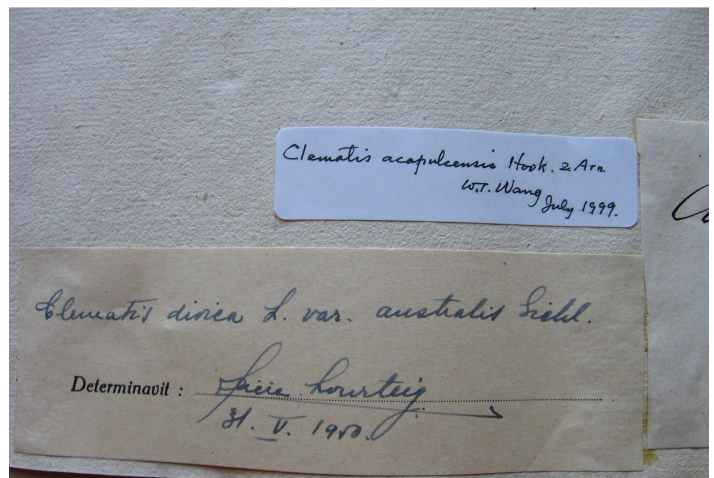 Clematis acapulcensis Hook. & Arn.
W.T. Wang
July 1999.
Clematis dioica L. var. australis Eichl.
Determinavit : Alicia Lourteig
31. V. 1950.